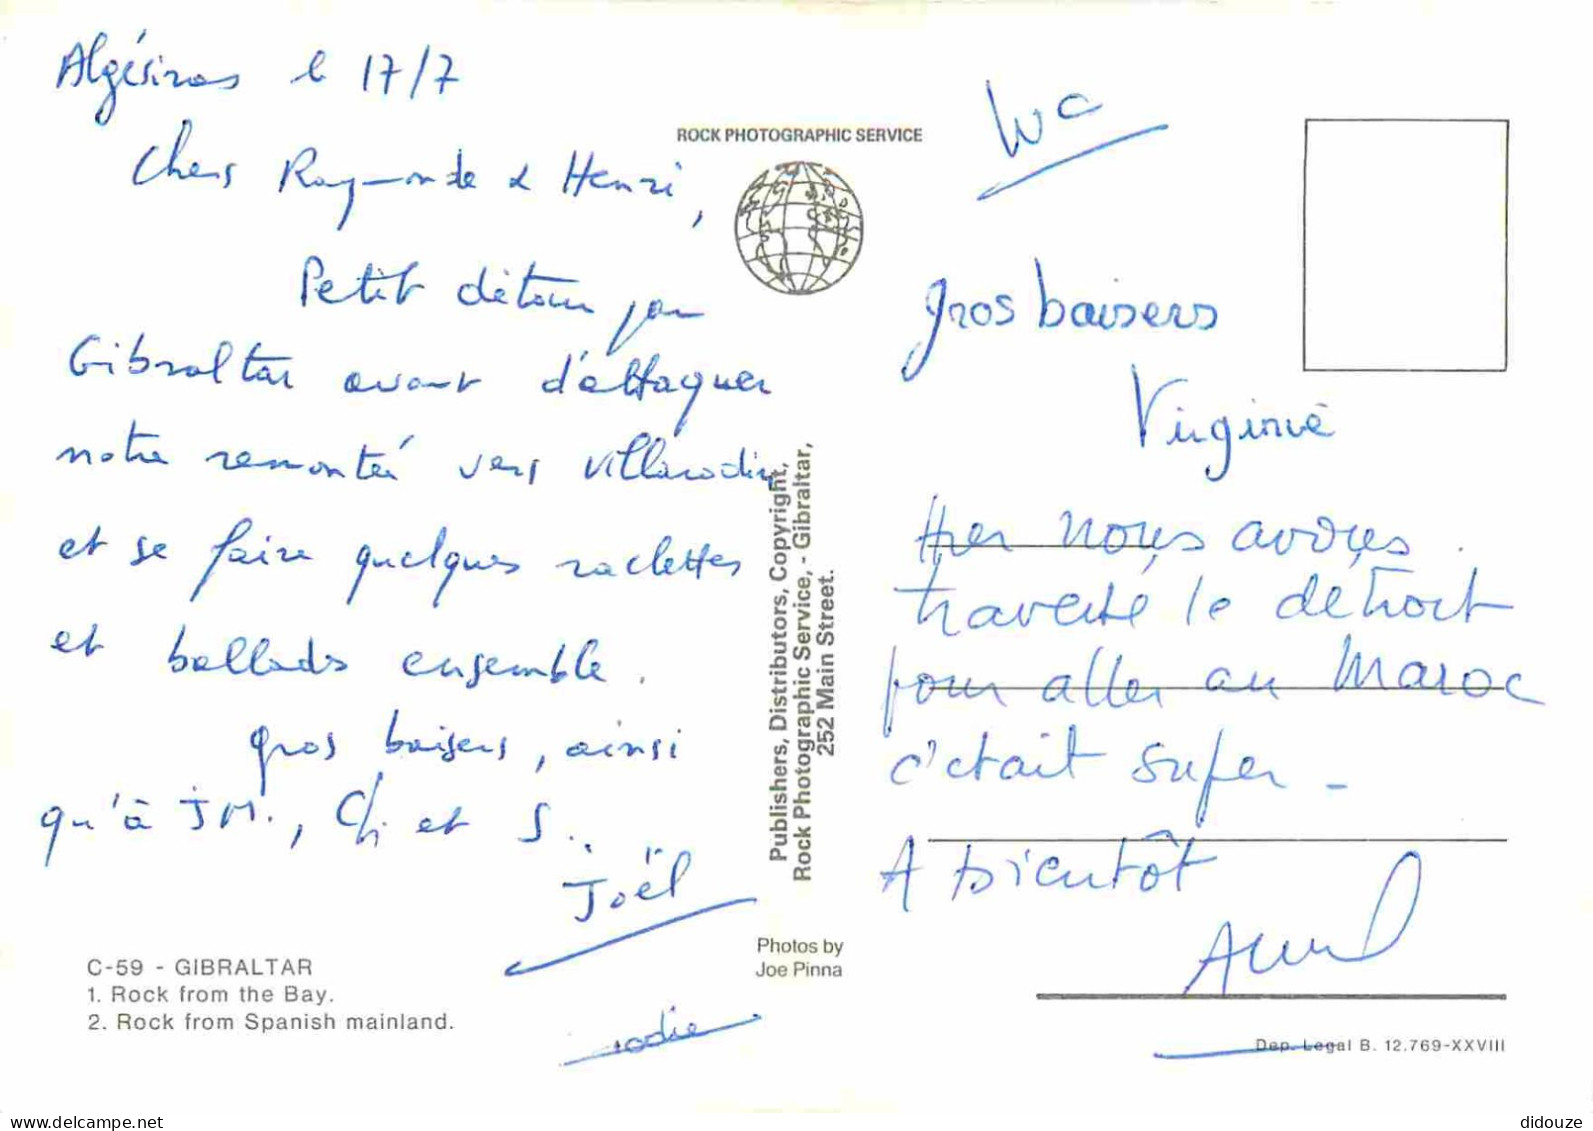 Algésiras le 17/7
Chers Raymonde & Henri,
Petit détour par
Gibraltar avant d'attaquer
notre remontée vers Villarodin
et se faire quelques raclettes
et ballades ensemble.
gros baisers, ainsi
qu'à JM., Ch et S..
Joël
C-59 - GIBRALTAR
1. Rock from the Bay.
2. Rock from Spanish mainland.
ROCK PHOTOGRAPHIC SERVICE
Publishers, Distributors, Copyright,
Rock Photographic Service, - Gibraltar,
252 Main Street.
Photos by
Joe Pinna
Luc
gros baisers
Virginie
Hier nous avons
traversé le détroit
pour aller au Maroc
c'était super -
A bientôt
Dep. Legal B. 12.769-XXVIII
didouze